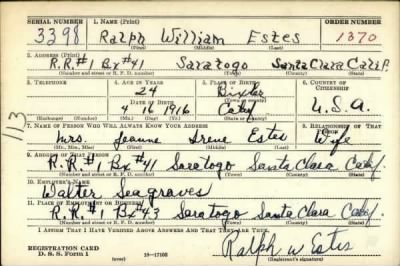 SERIAL NUMBER 1. NAME (Print) ORDER NUMBER
3398 Ralph William Estes 1370
(First) (Middle) (Last)
2. ADDRESS (Print)
R.R.#1 Bx#41 Saratogo Santa Clara Calif.
(Number and street or R. F. D. number) (Town) (County) (State)
3. TELEPHONE 4. AGE IN YEARS 5. PLACE OF BIRTH 6. COUNTRY OF CITIZENSHIP
24 Bixler
(Town or county)
DATE OF BIRTH
4 16 1916 Calif U.S.A.
(Exchange) (Number) (Mo.) (Day) (Yr.) (State or country)
113
7. NAME OF PERSON WHO WILL ALWAYS KNOW YOUR ADDRESS 8. RELATIONSHIP OF THAT PERSON
Mrs. Jeanne Irene Estes Wife
(Mr., Mrs., Miss) (First) (Middle) (Last)
9. ADDRESS OF THAT PERSON
R.R.#1 Bx#41 Saratogo Santa Clara Calif.
(Number and street or R. F. D. number) (Town) (County) (State)
10. EMPLOYER'S NAME
Walter Seagraves
11. PLACE OF EMPLOYMENT OR BUSINESS
R.R.#1 Bx#43 Saratogo Santa Clara Calif.
(Number and street or R. F. D. number) (Town) (County) (State)
I AFFIRM THAT I HAVE VERIFIED ABOVE ANSWERS AND THAT THEY ARE TRUE.
REGISTRATION CARD
D. S. S. Form 1 16—17105
Ralph W Estes
(Registrant's signature)